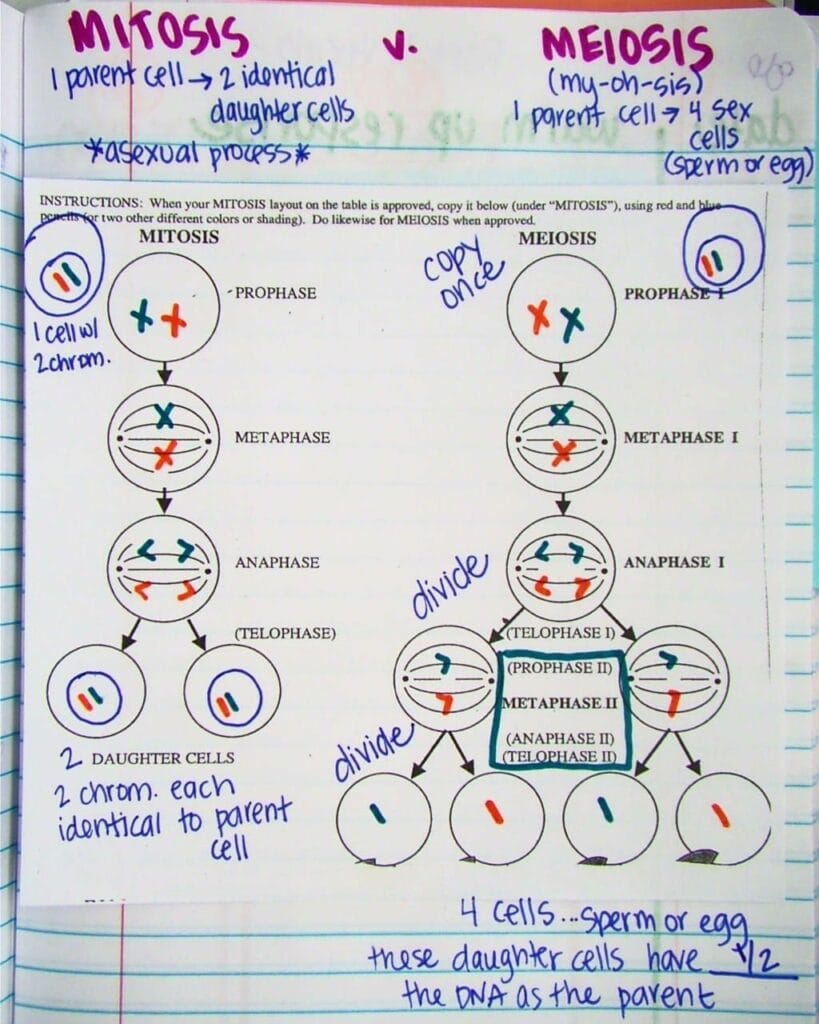 MITOSIS v. MEIOSIS
1 parent cell → 2 identical
daughter cells
*asexual process*
(my-oh-sis)
1 parent cell → 4 sex
cells
(sperm or egg)
INSTRUCTIONS: When your MITOSIS layout on the table is approved, copy it below (under "MITOSIS"), using red and blue
pencils (or two other different colors or shading). Do likewise for MEIOSIS when approved.
MITOSIS
1 cell w/
2 chrom.
PROPHASE
METAPHASE
ANAPHASE
(TELOPHASE)
2 DAUGHTER CELLS
2 chrom. each
identical to parent
cell
MEIOSIS
copy
once
PROPHASE I
METAPHASE I
ANAPHASE I
divide
(TELOPHASE I)
(PROPHASE II)
METAPHASE II
(ANAPHASE II)
(TELOPHASE II)
divide
4 cells...sperm or egg
these daughter cells have 1/2
the DNA as the parent